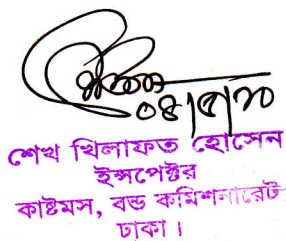 ০৪/৫/২০
শেখ খিলাফত হোসেন
ইন্সপেক্টর
কাষ্টমস, বন্ড কমিশনারেট
ঢাকা।